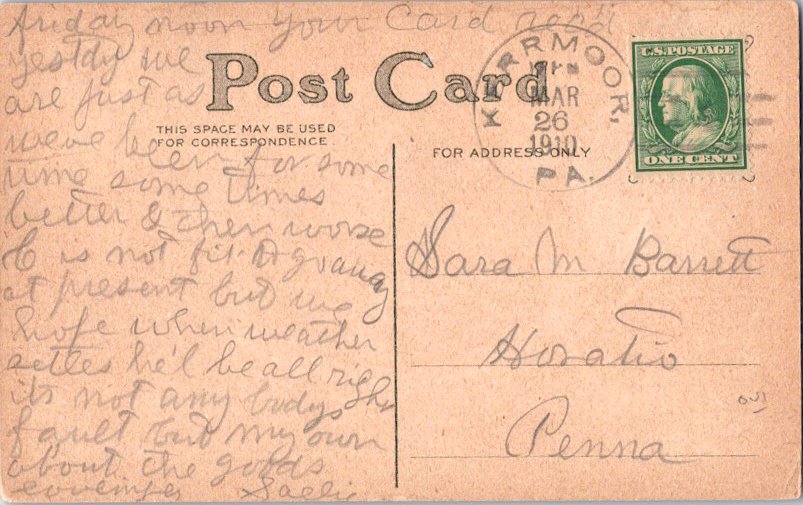 Friday noon Your Card
yestdy we
Post Card
are just as
THIS SPACE MAY BE USED
FOR CORRESPONDENCE
weve been for some
time some times
better & then worse
C is not fit to go away
at present but we
hope when weather
settles he'l be all right
its not any bodys
fault but my own
about the goods
Sallie
FOR ADDRESS ONLY
KERRMOOR,
MAR
26
1910
PA.
U.S. POSTAGE
ONE CENT
Sara M Barrett
Horatio
Penna